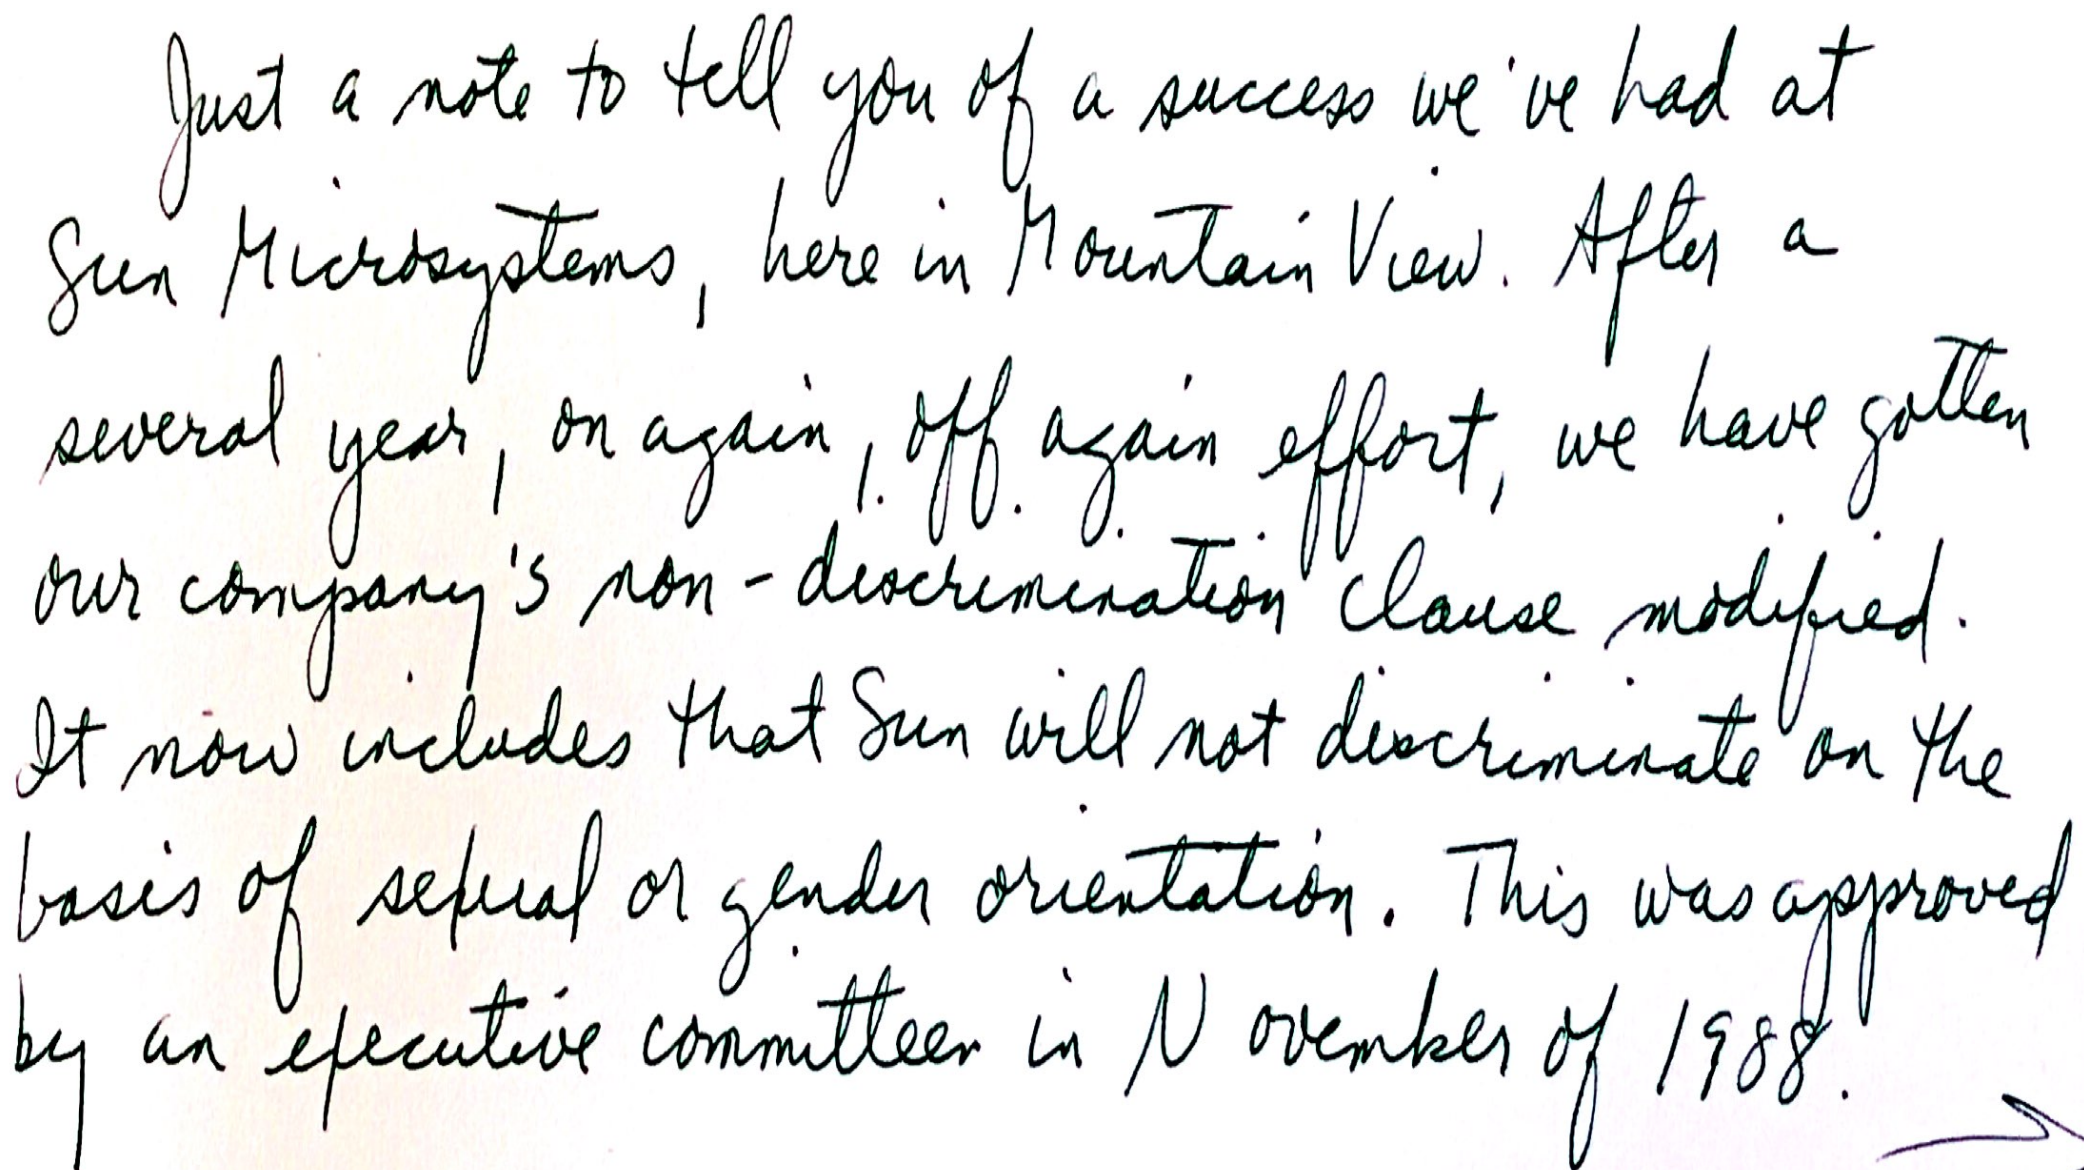 Just a note to tell you of a success we've had at
Sun Microsystems, here in Mountain View. After a
several year, on again, off again effort, we have gotten
our company's non-discrimination clause modified.
It now includes that Sun will not discriminate on the
basis of sexual or gender orientation. This was approved
by an executive committeer in November of 1988.